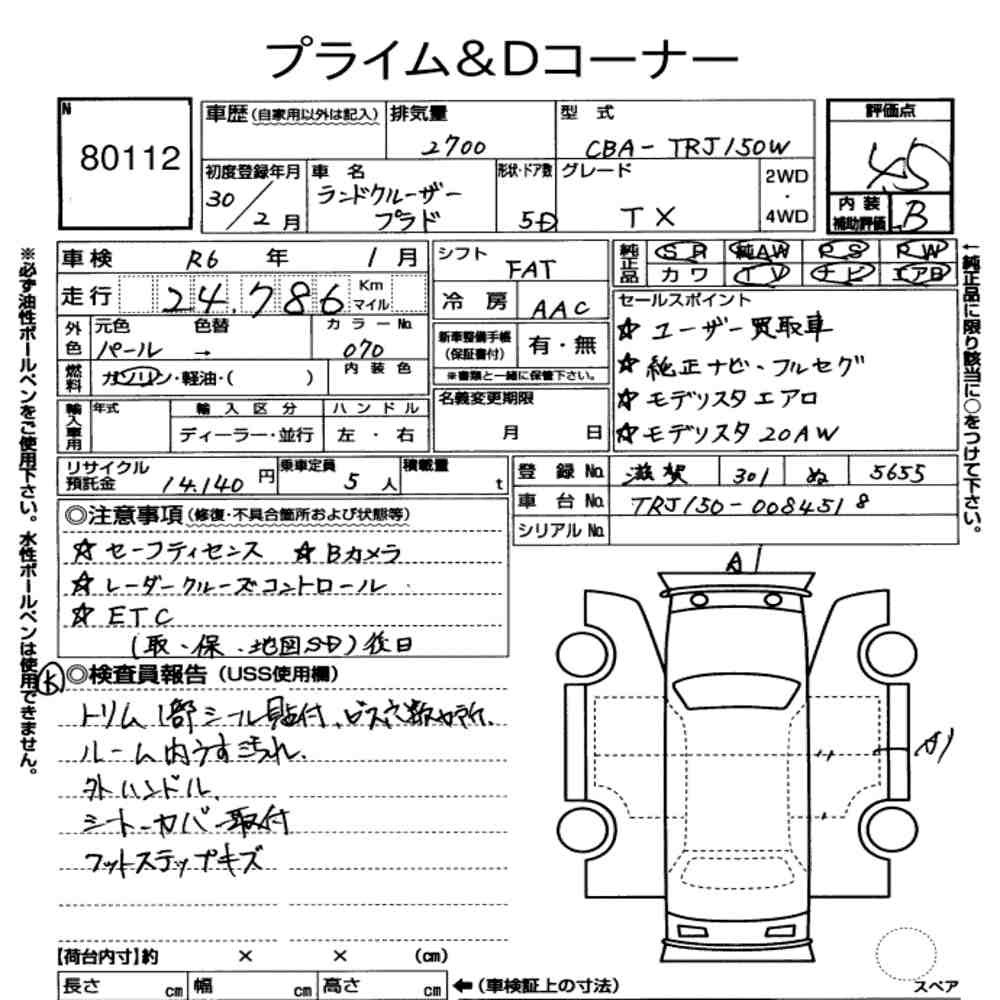 プライム&Dコーナー
N
80112
車歴(自家用以外は記入)
排気量
2700
型 式
CBA-TRJ150W
評価点
4.5
初度登録年月
30/2月
車 名
ランドクルーザー
プラド
形状・ドア数
5D
グレード
TX
2WD
・
4WD
内 装
補助評価
B
車検 R6 年 1月
走行 24.786 Km
マイル
外色
元色 色替
パール →
カラーNo.
070
燃料
ガソリン・軽油・( )
内 装 色
輸入車用
年式
輸 入 区 分
ディーラー・並行
ハ ン ド ル
左 ・ 右
シフト
FAT
冷 房
AAC
新車整備手帳
(保証書付)
有・無
※書類と一緒に保管下さい。
名義変更期限
月 日
純正品
SR 純AW PS PW
カワ TV ナビ エアB
セールスポイント
☆ ユーザー買取車
☆ 純正ナビ・フルセグ
☆ モデリスタエアロ
☆ モデリスタ20AW
リサイクル
預託金
14.140 円
乗車定員
5 人
積載量
t
登 録 No. 滋賀 301 ぬ 5655
車 台 No. TRJ150-0084518
シリアルNo.
◎注意事項(修復・不具合箇所および状態等)
☆ セーフティセンス ☆ Bカメラ
☆ レーダークルーズコントロール
☆ ETC
(取・保・地図SD)後日
◎検査員報告(USS使用欄)
トリム1部シール貼付、ビス穴数カ所、
ルーム内うす汚れ、
外ハンドル、
シートーカバー取付
フットステップキズ
A1
A1
【荷台内寸】約 × × (cm)
長さ cm 幅 cm 高さ cm
←(車検証上の寸法)
スペア
※必ず油性ボールペンをご使用下さい。水性ボールペンは使用できません。
←純正品に限り該当に○をつけて下さい。